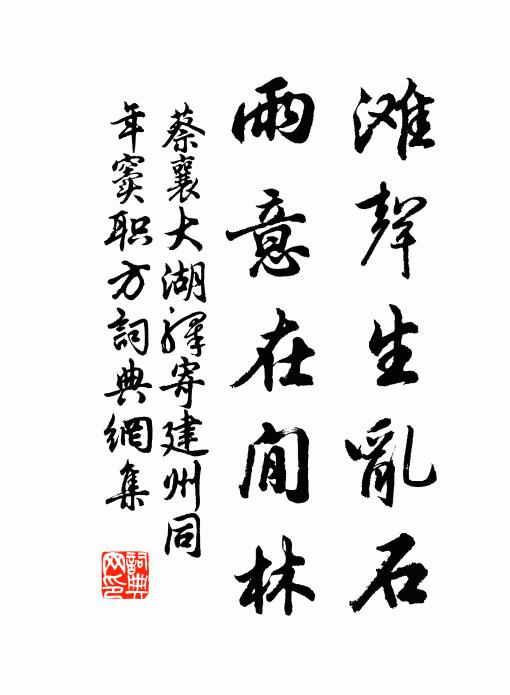 滩聲生亂石
雨意在閒林
蔡襄大湖驛寄建州同
年竇职方詞典網集
詞典網印